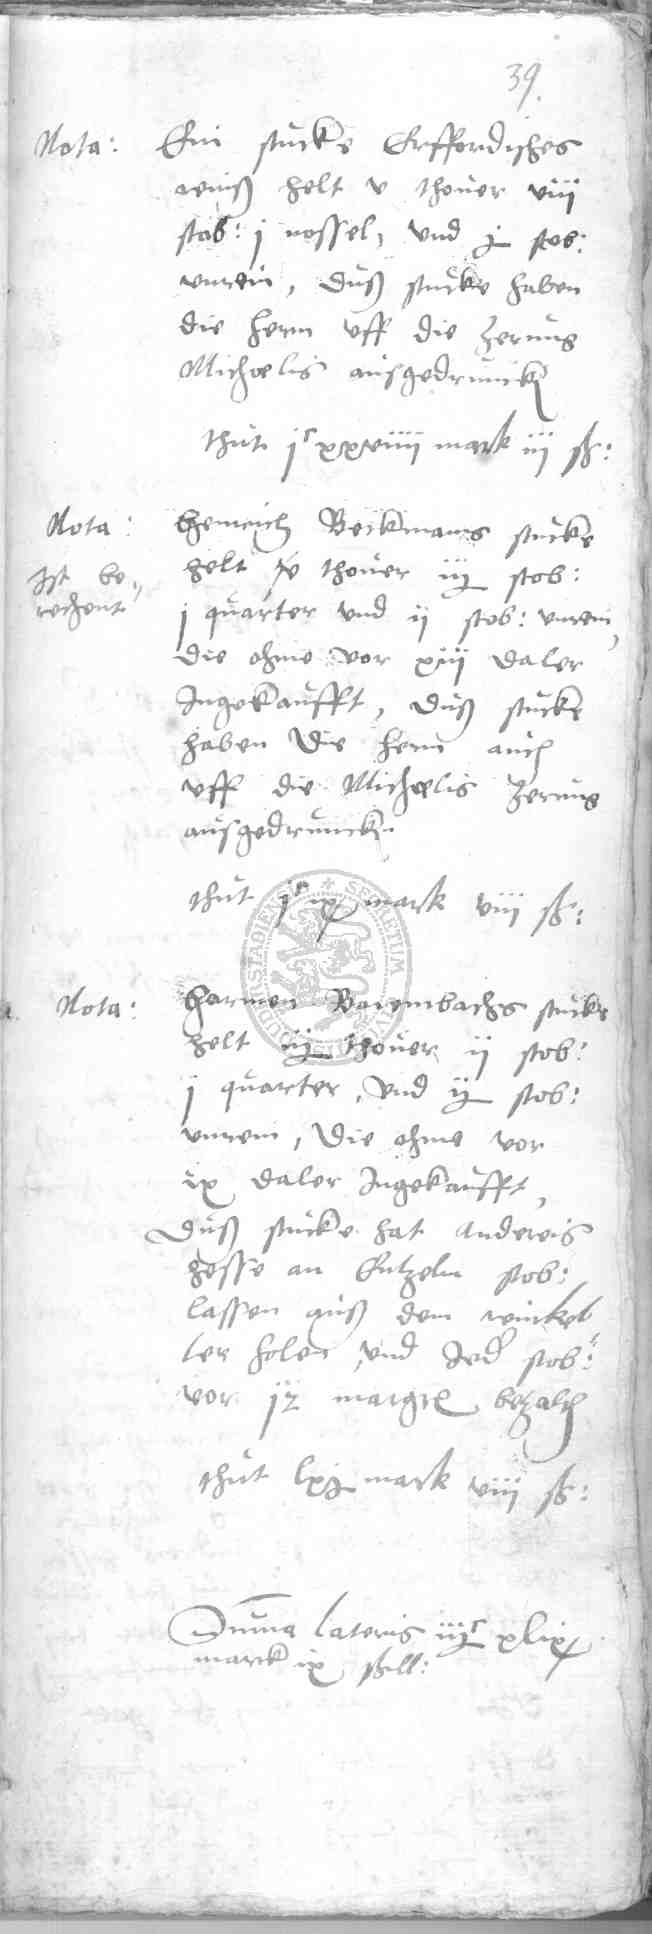 39.
Nota: Ein stucke Erffordisches
weinß helt v thouer viij
stob: j nossel, vnd j stob:
vnrein, duß stucke haben
die hern vff die Zerung
Michaelis ausgedrunckē
thut jᶜ xxxviiij mark iij ß:
Nota: Henrich Beckmans stucke
Ist be„
rechent
helt v thouer iij stob:
j quarter vnd ij stob: vnrein,
die ohme vor xiij daler
Ingekaufft, duß stucke
haben die hern auch
vff die Michaelis Zerung
ausgedrunckē.
thut jᶜ ix mark viij ß:
SECRETUM
Nota: Harmen Barembachs stucke
helt iij thouer ij stob:
j quarter, vnd ij stob:
vnrein, die ohme vor
ix daler Ingekaufft,
Duß stucke hat Andereis
Hesse an Entzeln stob:
lassen auß dem winkel
ler holen vnd Jed stob:
vor margē betzalt
thut mark viij ß:
Summa lateris iijᶜ xlix
marck ix ßll: